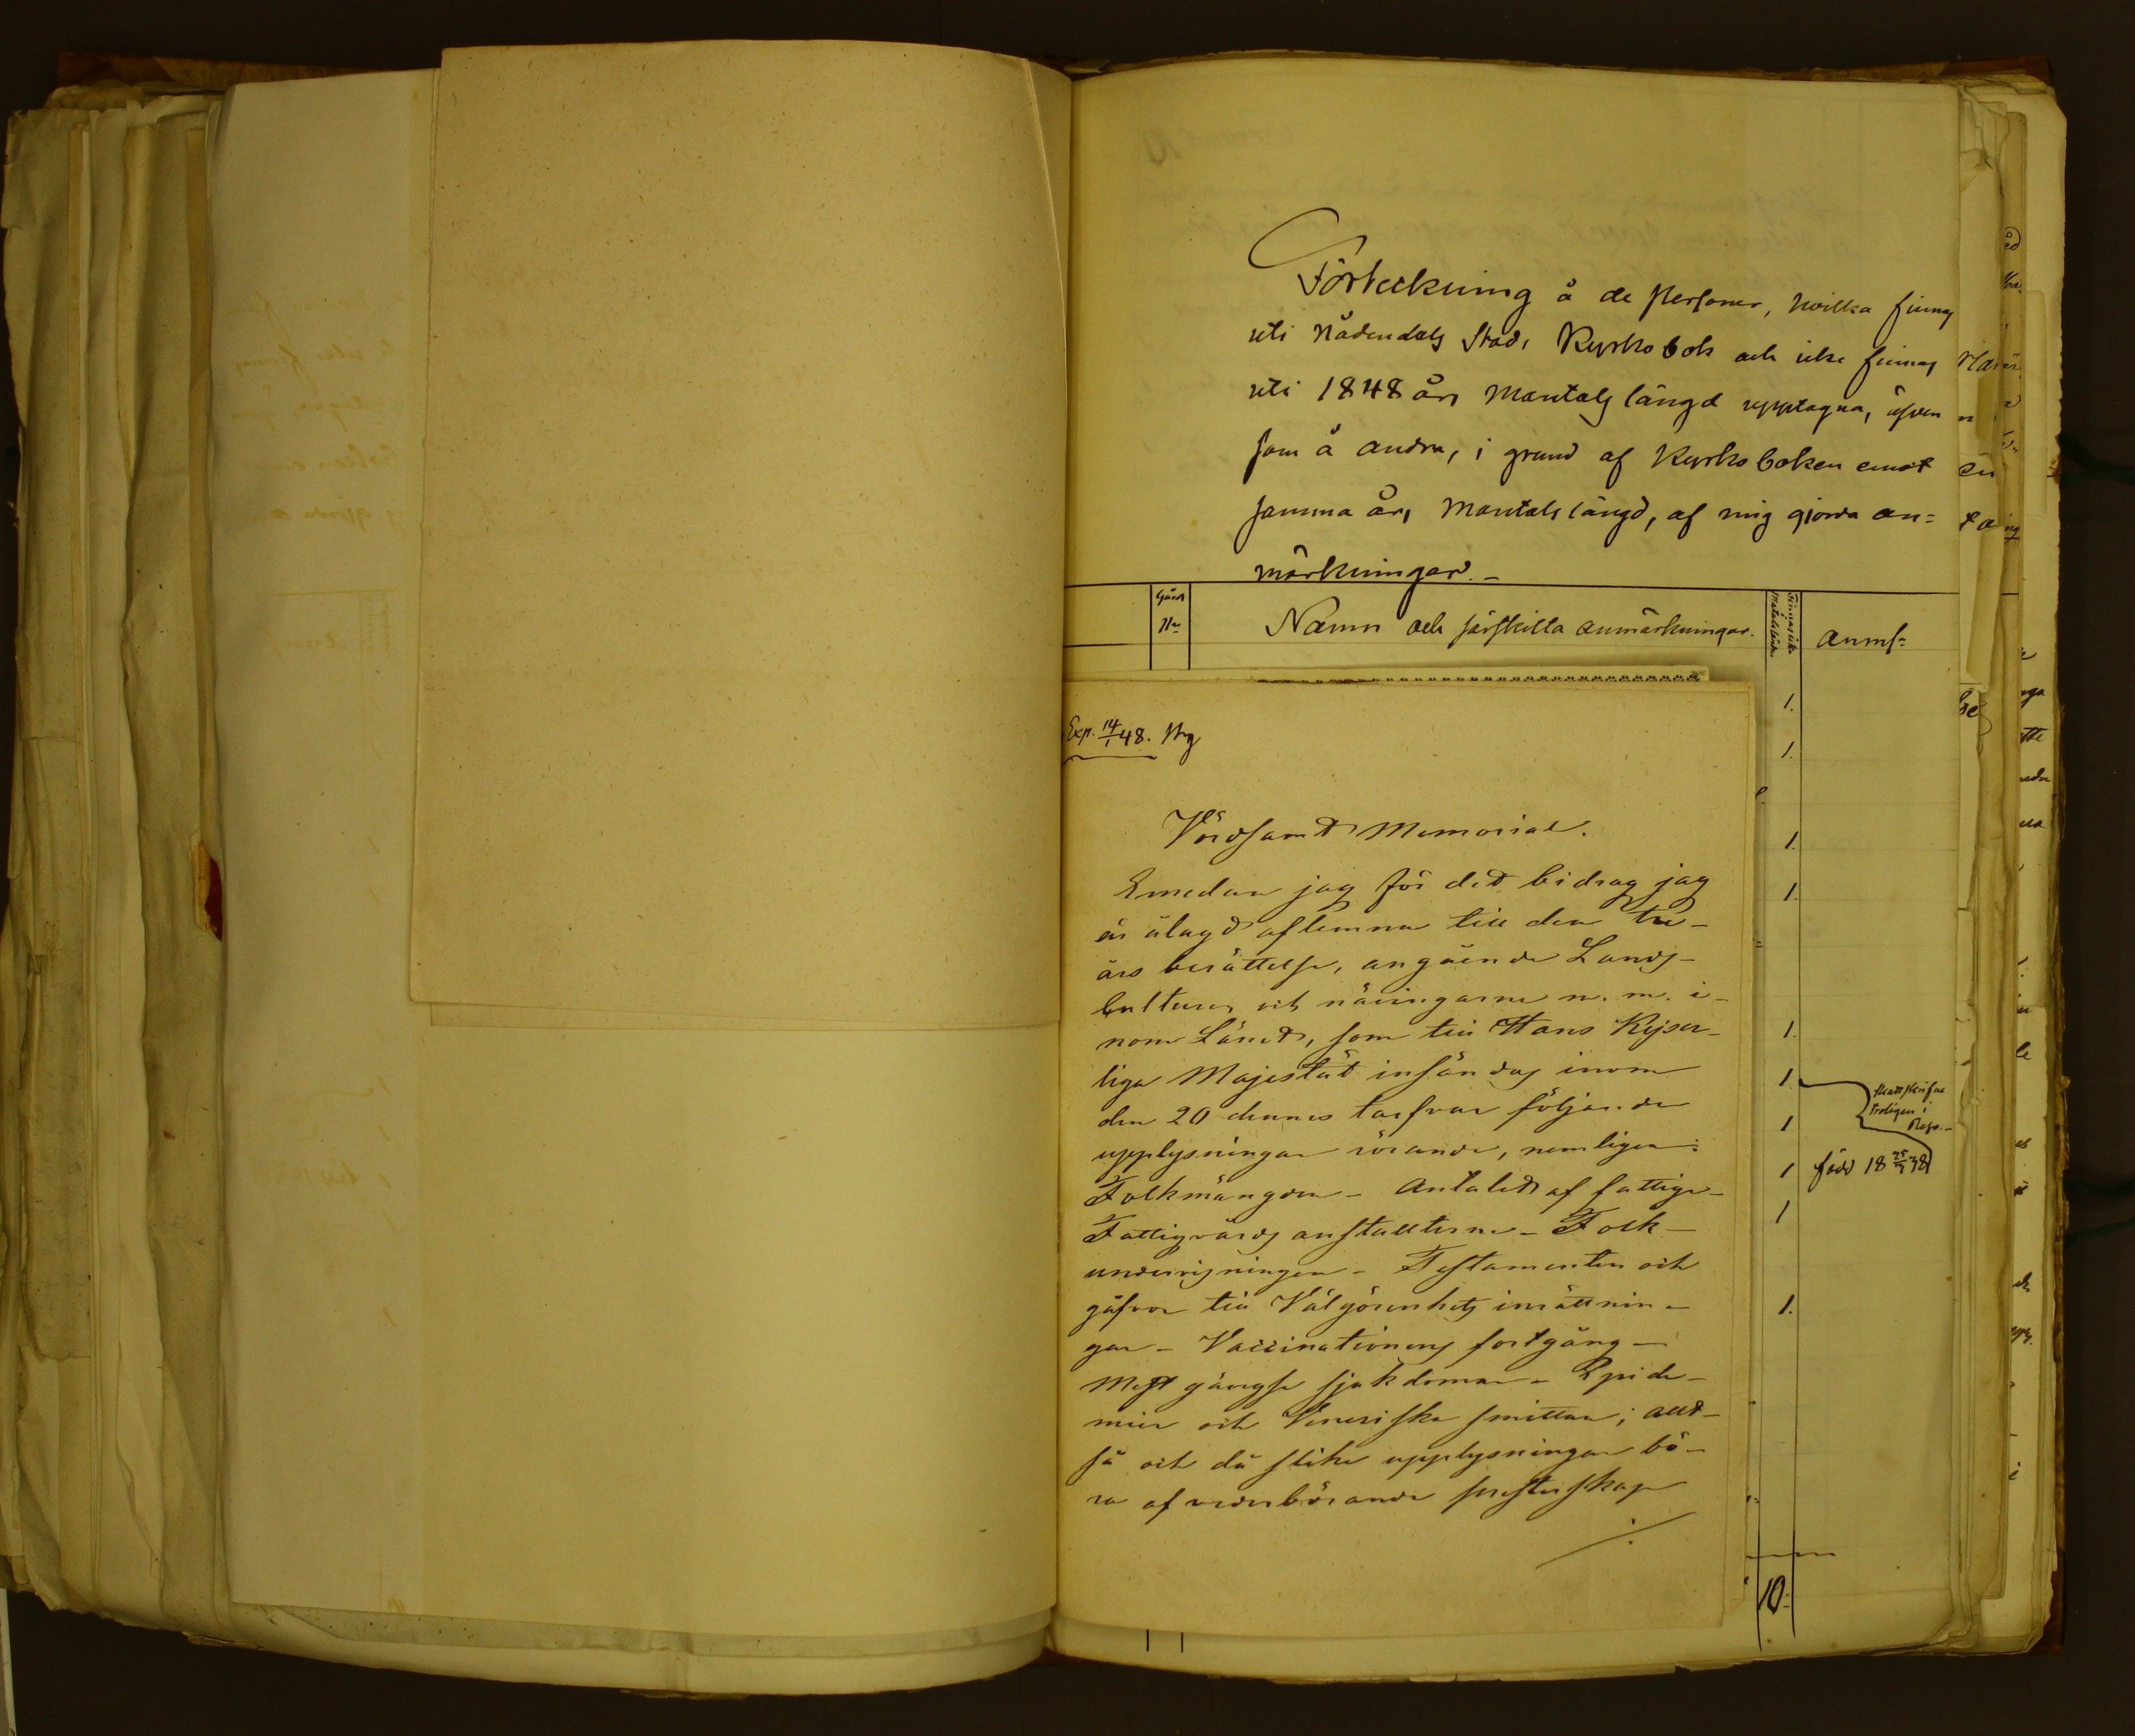 Förteckning å de Personer, hvilka finnas
uti Nådendals Stads Kyrkobok och icke finnas
uti 1848 års Mantals längd upptagna, äfven
som å andra, i grund af Kyrkoboken emot
samma års Mantals längd, af mig gjorda an=
märkningar. -
Gårds
No
Namn och särskilta anmärkningar.
Finnas icke
Mantalslängden
Anms=
1.
1.
1.
1.
1.
1
1
1
1
1.
10.
skattskrifne
troligen i
Reso.-
född 18 25/3 38
Exp. 14/1 48.
Vördsamt Memorial.
Emedan jag för det bidrag jag
är ålagd aflemna till den tre-
års berättelse, angående Lands-
kulturen och näringarne m. m. i-
nom Länet, som till Hans Kejser-
liga Majestät insändas inom
den 20 dennes tarfvar följande
upplysningar rörande, nemligen:
Folkmängden - Antalet af fattige -
Fattigvårds anstallterne - Folk-
undervisningen - Testamenten och
gåfvor till Välgörenhets inrättnin-
gar - Vaccinationens fortgång -
Mest gängse sjukdomar - Epide-
mier och Veneriska smittan; allt-
så och då slike upplysningar bö-
ra af vederbörande presterskap
./.